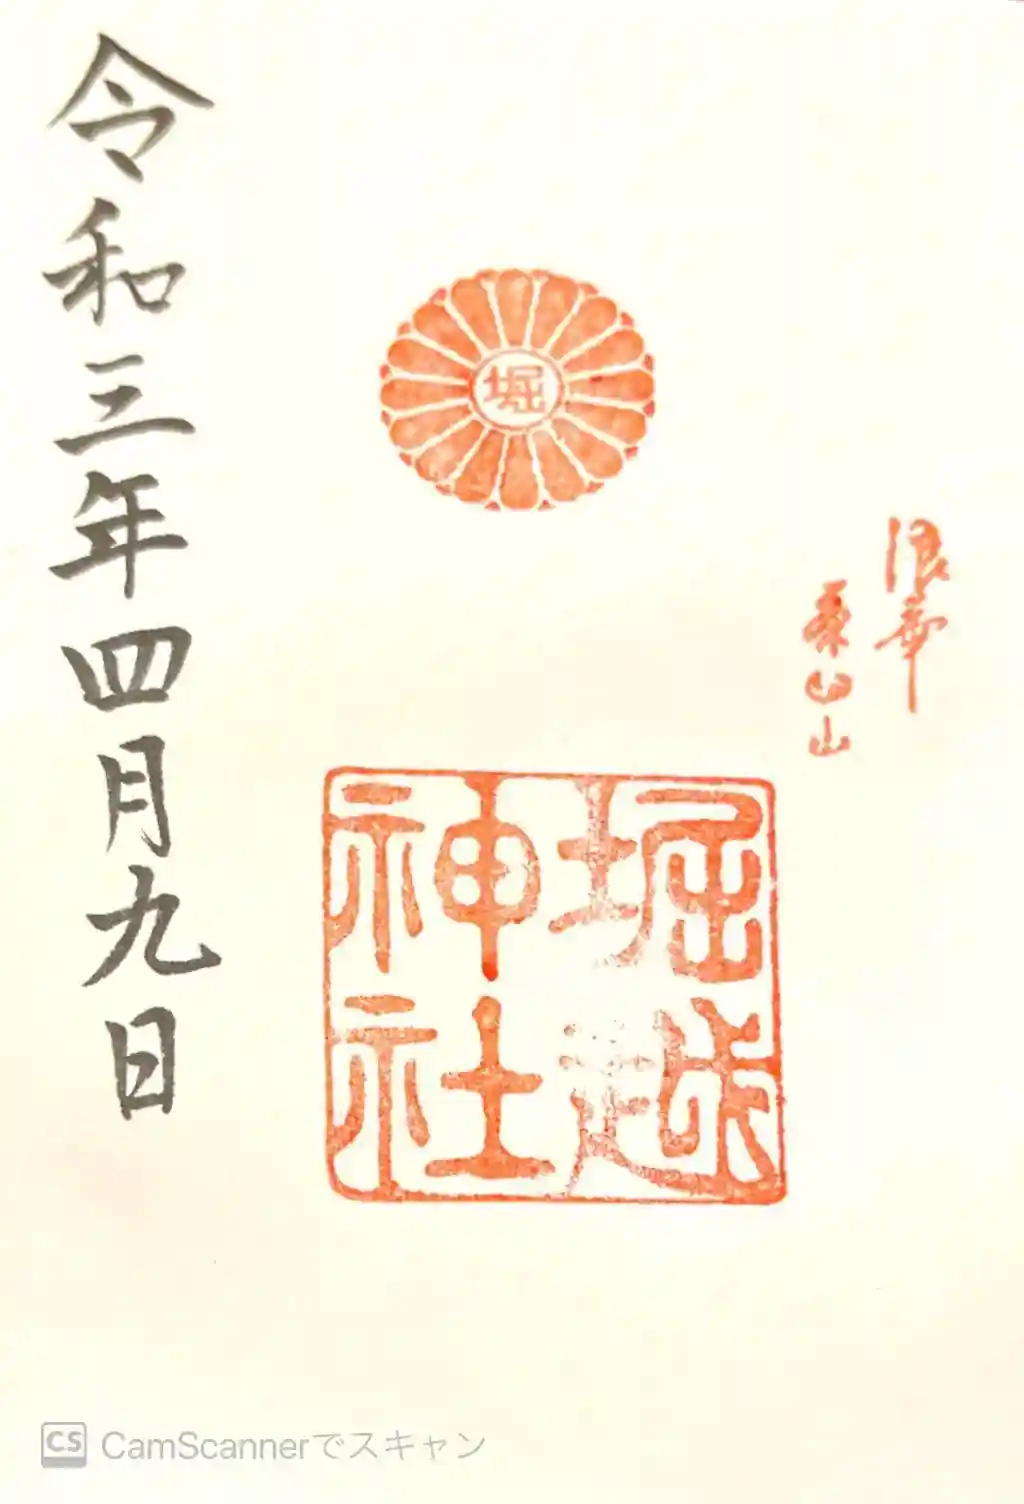 浪華
茶臼山
堀
堀越
神社
令和三年四月九日
CS CamScannerでスキャン